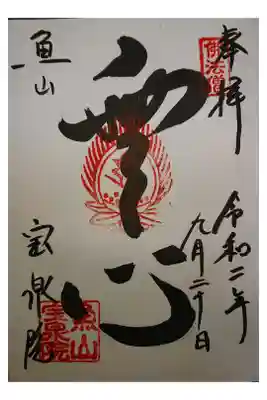 奉拝
令和二年
九月二十日
無心
魚山
宝泉院
佛法僧寶
魚山
宝泉院